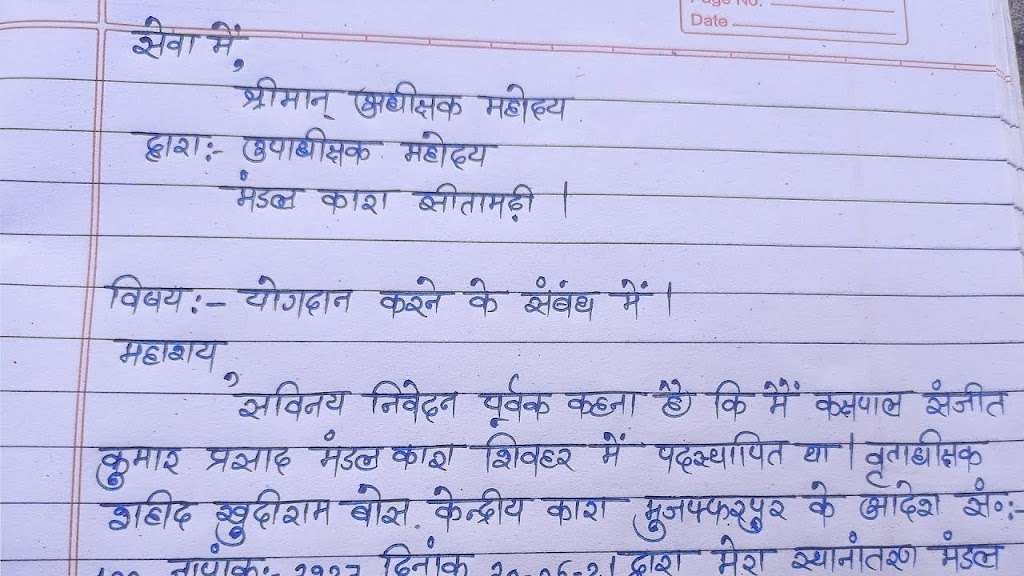 Page No.
Date
सेवा में,
श्रीमान् अधीक्षक महोदय
द्वारा:- उपाधीक्षक महोदय
मंडल कारा सीतामढ़ी ।
विषय:- योगदान करने के संबंध में ।
महाशय,
सविनय निवेदन पूर्वक कहना है कि मैं कक्षपाल संजीत
कुमार प्रसाद मंडल कारा शिवहर में पदस्थापित था । वृताधीक्षक
शहीद खुदीराम बोस केन्द्रीय कारा मुजफ्फरपुर के आदेश सं०:-
दिनांक द्वारा मेरा स्थानांतरण मंडल